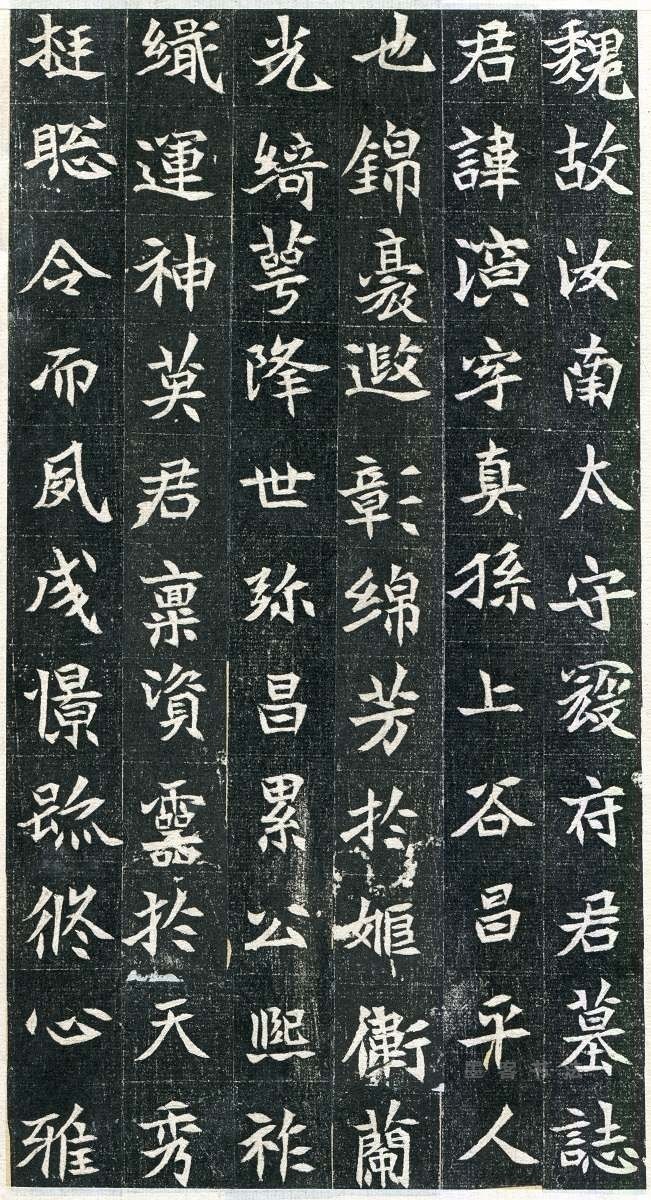 魏故汝南太守寇府君墓誌
君諱演字真孫上谷昌平人
也錦遐彰綿芳於姬衛蘭
光綺萼降世弥昌累公熙祚
緝運神英君稟資靈於天秀
挺聡令而夙成憬跡脩心雅